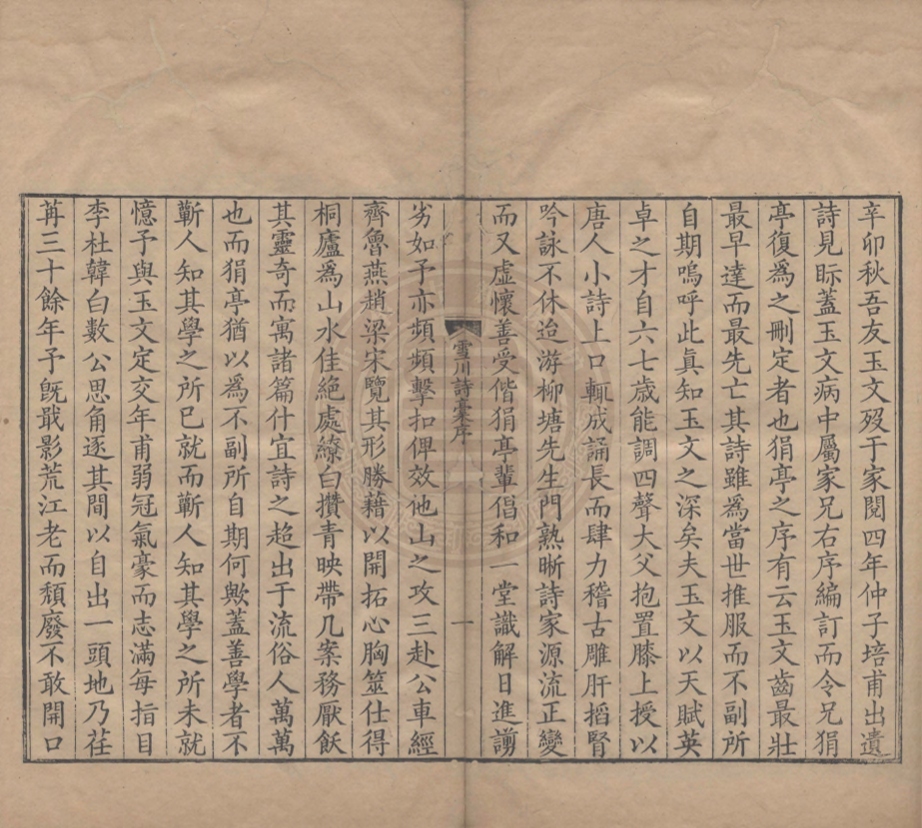 辛卯秋吾友玉文歿于家閱四年仲子培甫出遺
詩見眎蓋玉文病中屬家兄右序編訂而令兄狷
亭復為之刪定者也狷亭之序有云玉文齒最壯
最早達而最先亡其詩雖為當世推服而不副所
自期嗚呼此真知玉文之深矣夫玉文以天賦英
卓之才自六七歲能調四聲大父抱置膝上授以
唐人小詩上口輒成誦長而肆力稽古雕肝搯腎
吟詠不休迨游柳塘先生門熟晰詩家源流正變
而又虛懷善受偕狷亭輩倡和一堂識解日進謭
雪川詩稾序
一
劣如予亦頻頻擊扣俾效他山之攻三赴公車經
齊魯燕趙梁宋覽其形勝藉以開拓心胸筮仕得
桐廬為山水佳絕處繚白攢青映帶几案務厭飫
其靈奇而寓諸篇什宜詩之超出于流俗人萬萬
也而狷亭猶以為不副所自期何歟蓋善學者不
蘄人知其學之所已就而蘄人知其學之所未就
憶予與玉文定交年甫弱冠氣豪而志滿每指目
李杜韓白數公思角逐其間以自出一頭地乃荏
苒三十餘年予既戢影荒江老而頹廢不敢開口